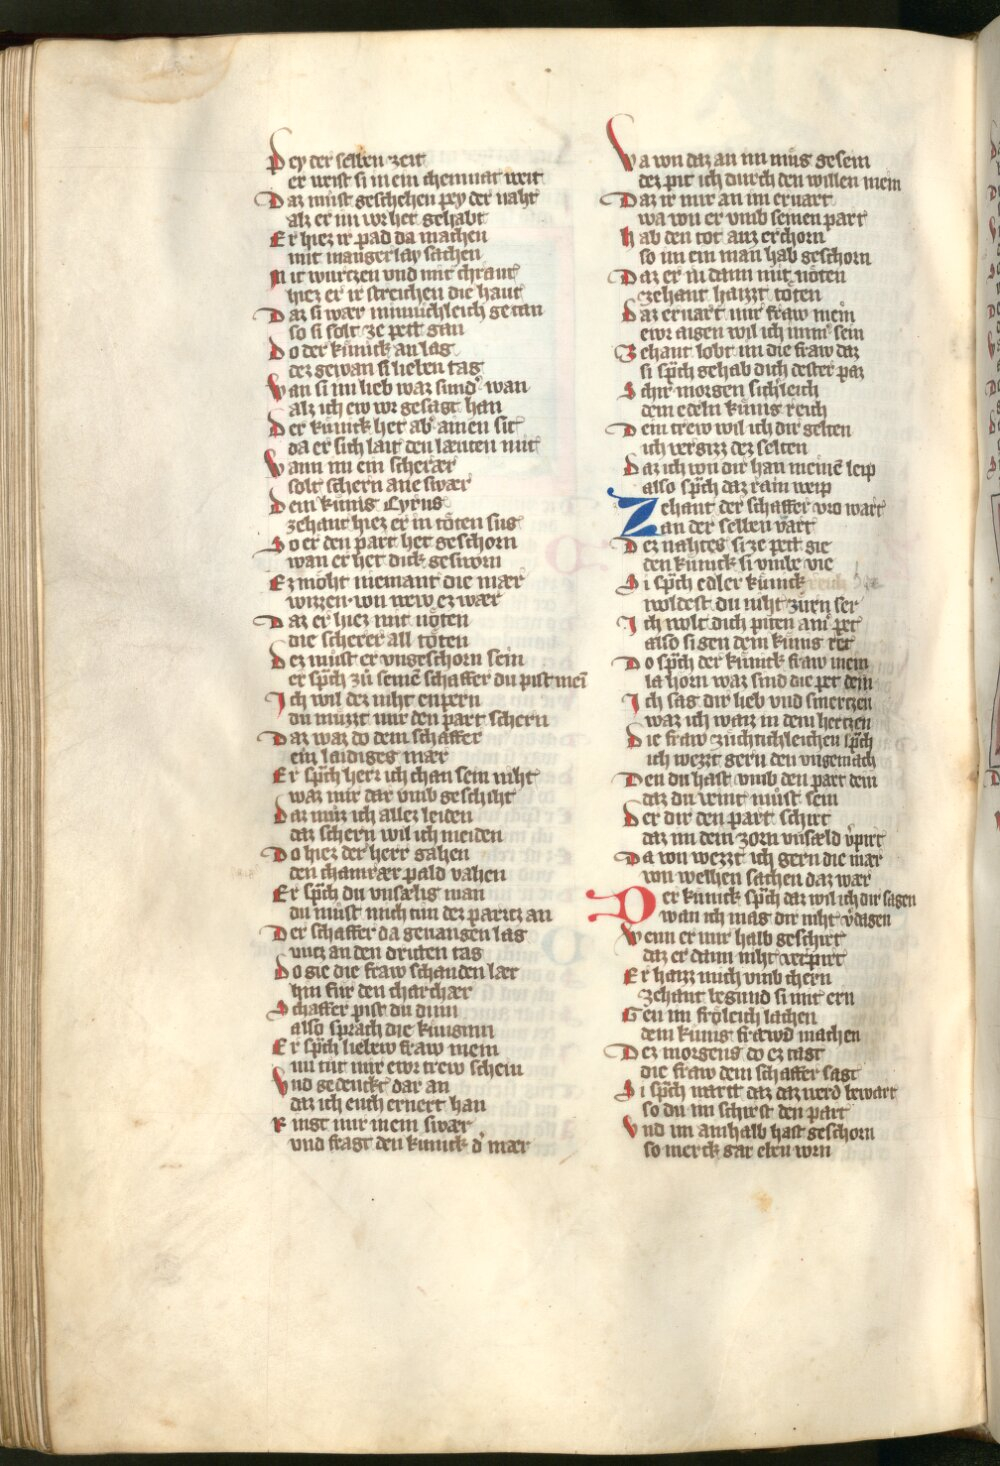 Pey der selben zeit
er weist si in ein chemnat weit
Daz müst geschehen pey der naht
alz er im vor het gehabt
Er hiez ir pad da machen
mit mangerlay sachen
Mit wurczen vnd mit chraut
hiez er ir streichen die haut
Daz si wær minnichleich getan
so si solt ze pett gan
Do der künick an lag
dez gewan si lieben tag
Wan si im lieb waz sund᷑ wan
alz ich ew vor gesagt han
Der künick het ab᷑ ainen sit
da er sich lait den læuten mit
Wann im ein scherær
solt schern ane swær
Dem künig Cyrus
zehant hiez er in töten sus
So er den part het geschorn
wan er het dick gesworn
Ez möht niemant die mær
wizzen von wew ez wær
Daz er hiez mit nöten
die scherer all töten
Dez müst er vngeschorn sein
er sp̃ch zů seinē schaffer du pist mei
Ich wil dez niht enpern
du müzzt mir den part schern
Daz waz do dem schaffer
ein laidigez mær
Er sp̃ch herr ich chan sein niht
waz mir dar vmb geschiht
Daz müz ich allez leiden
daz schern wil ich meiden
Do hiez der herr gahen
den chamrær pald vahen
Er sp̃ch du vnsælig man
du müst mich tun dez paricz an
Der schaffer da geuangen lag
vncz an den dritten tag
Do gie die fraw schanden lær
hin für den charchær
Schaffer pist du dinn
also sprach die künginn
Er sp̃ch liebew fraw mein
nu tüt mir ewr trew schein
Vnd gedenckt dar an
daz ich euch ernert han
Ringt mir mein swær
vnd fragt den künick d᷑ mær
Va von daz an im müg gesein
dez pit ich durch den willen mein
Daz ir mir an im eruart
wa von er vmb seinen part
Hab den tot auz erchorn
so im ein man hab geschorn
Daz er in dann mit nöten
zehant haizzt töten
Daz eruart mir fraw mein
ewr aigen wil ich imm᷑ sein
Zehant lobt im die fraw daz
si sp̃ch gehab dich dester paz
Schir morgen sichleich
dem edeln künig reich
Dein trew wil ich dir gelten
ich vergizz dez selten
Daz ich von dir han meinē leip
also sp̃ch daz rain weip
Zehant der schaffer vro wart
an der selben vart
Dez nahtes si ze pett gie
den künick si vmbe vie
Si sp̃ch edler künick reich
woldest du niht zürn ser
Ich wolt dich piten ain᷑ pet
also si gen dem künig ret
Do sp̃ch der künick fraw mein
la horn waz sind die pet dein
Ich sag dir lieb vnd smerczen
waz ich waiz in dem herczen
Die fraw züchtichleichen sp̃ch
ich wezzt gern den vngemach
Den du hast vmb den part dein
daz du veint müst sein
Der dir den part schirt
daz im dein zorn vnsæld v᷑pirt
Da von wezzt ich gern die mær
von welhen sachen daz wær
Der künick sp̃ch daz wil ich dir sagen
wan ich mag dir niht v᷑dagen
Wenn er mir halb geschirt
daz er dann niht verpirt
Er haizz mich vmb chern
zehant begund si mit ern
Gen im frölich lachen
dem künig fræwd machen
Dez morgens do ez tagt
die fraw dem schaffer sagt
Si sp̃ch wart daz daz werd bewart
so du im schirst den part
Vnd im ainhalb hast geschorn
so merck gar eben vorn